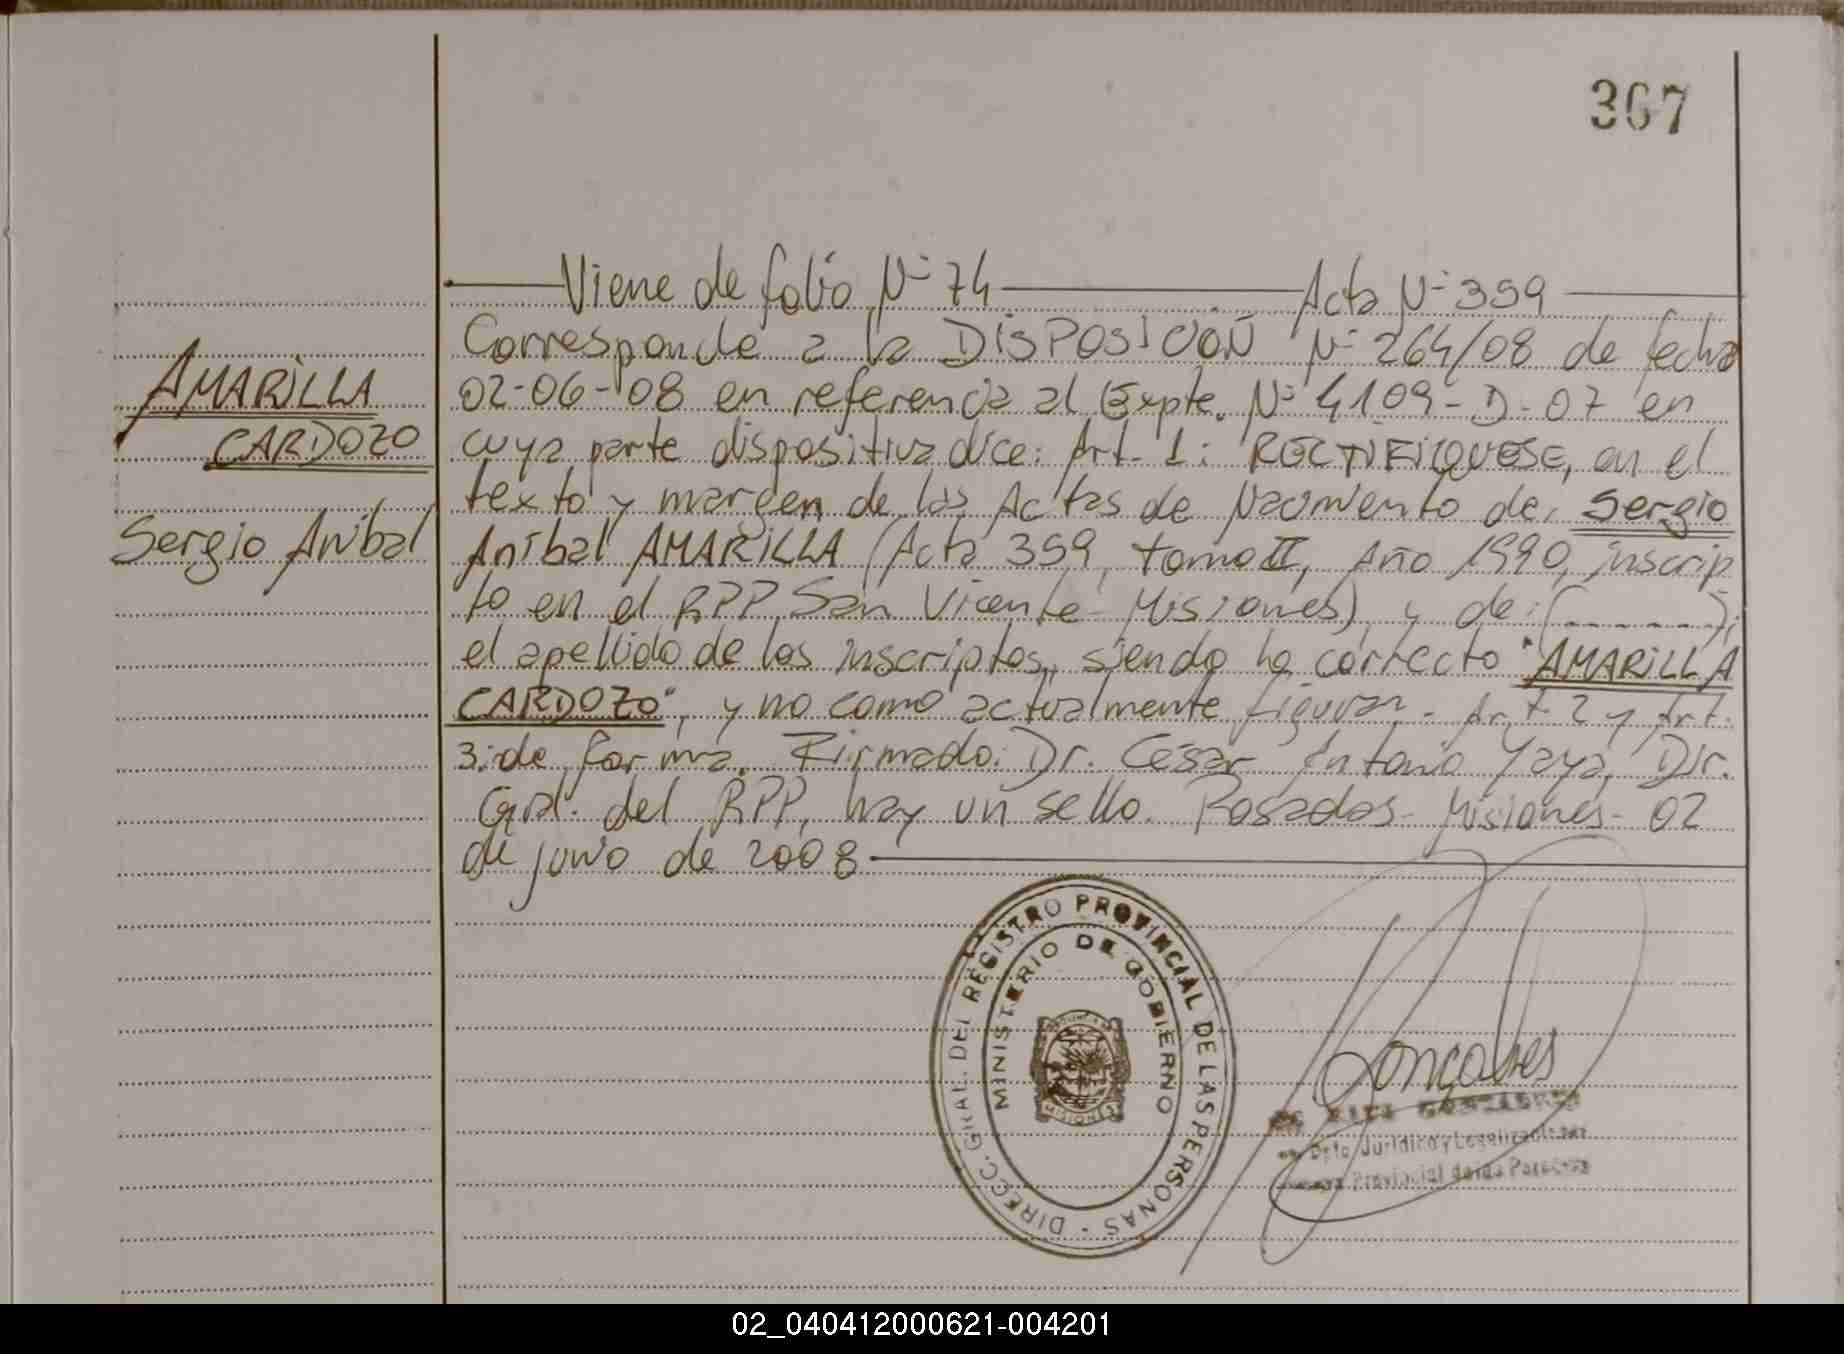 367
Viene de folio Nº 74 Acta Nº 359
Corresponde a la DISPOSICION Nº 264/08 de fecha
02-06-08 en referencia al Expte. Nº 4109-D-07 en
cuya parte dispositiva dice: Art. 1: RECTIFIQUESE, en el
texto y margen de las Actas de Nacimiento de: Sergio
Aníbal AMARILLA (Acta 359, tomo II, Año 1990, inscrip
to en el RPP San Vicente - Misiones) y de: (------);
el apellido de los inscriptos, siendo lo correcto "AMARILLA
CARDOZO", y no como actualmente figuran - Art. 2 y Art.
3: de forma. Firmado: Dr. César Antonio Yaya, Dir.
Gral. del RPP, hay un sello. Posadas - Misiones - 02
de junio de 2008
AMARILLA
CARDOZO
Sergio Aníbal
DIRECC. GRAL. DEL REGISTRO PROVINCIAL DE LAS PERSONAS -
MINISTERIO DE GOBIERNO
MISIONES
Gonçalves
Dpto. Jurídico y Legalizaciones
Provincial de las Personas
02_040412000621-004201